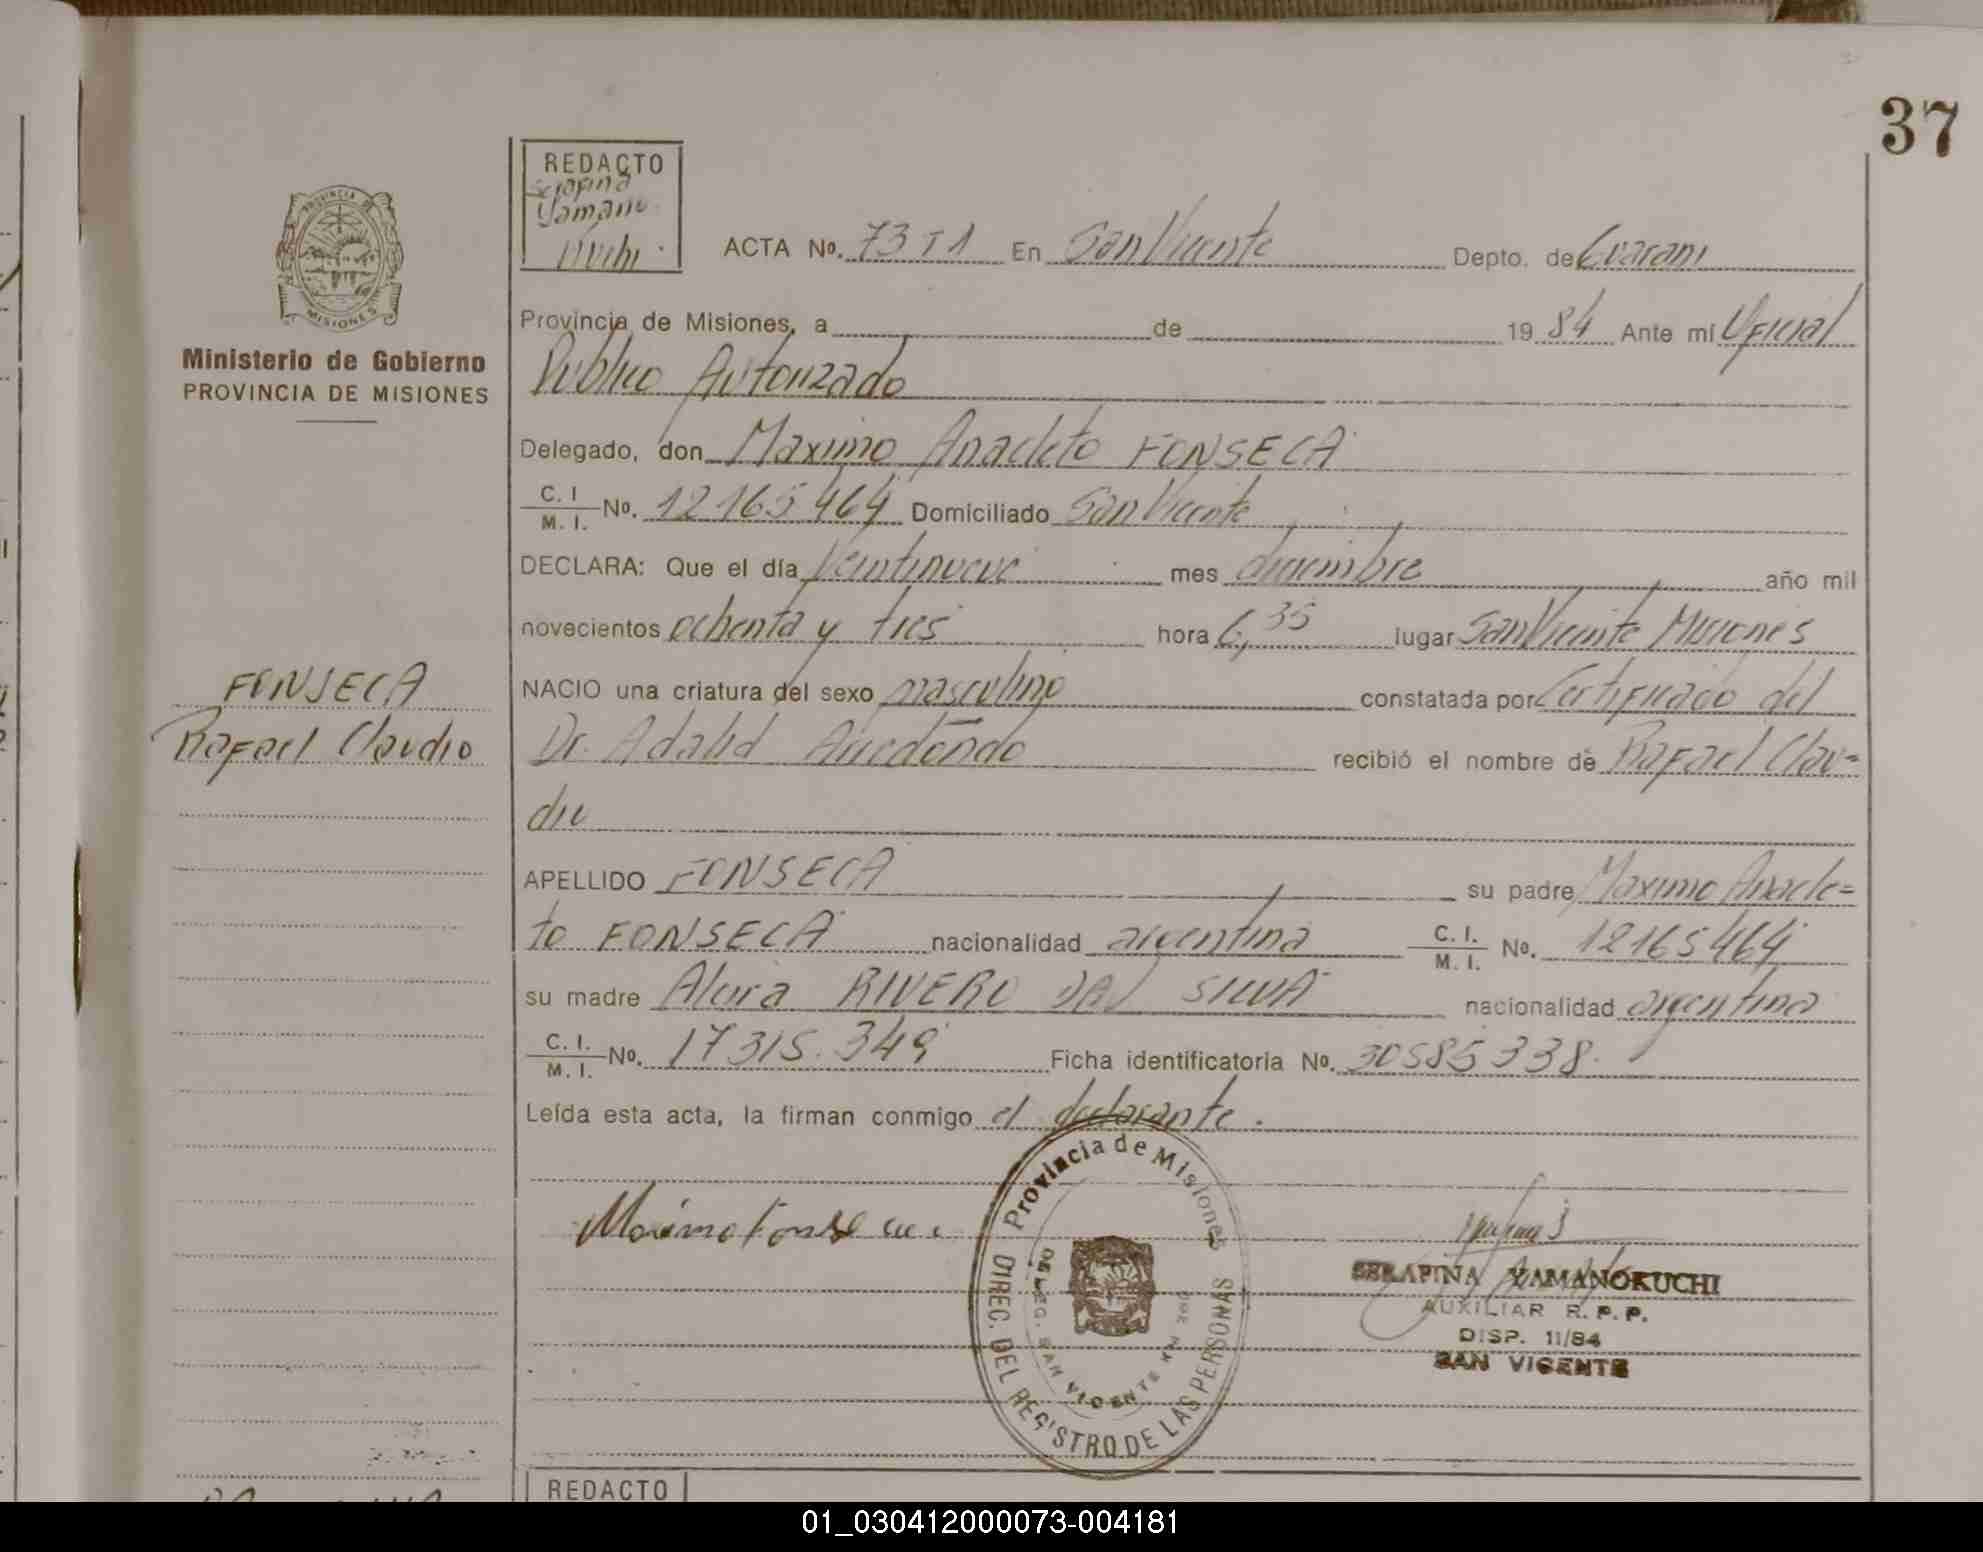 37
REDACTO
Serafina
Yamano
Kuchi.
ACTA No. 73 T1 En San Vicente Depto. de Guarani
PROVINCIA DE
MISIONES
Provincia de Misiones, a de 1984 Ante mi Oficial
Ministerio de Gobierno
PROVINCIA DE MISIONES
Publico Autorizado
Delegado, don Maximo Anacleto FONSECA
C. I
M. I. No. 12165464 Domiciliado San Vicente
DECLARA: Que el día Veintinueve mes diciembre año mil
novecientos ochenta y tres hora 6,35 lugar San Vicente Misiones
FONSECA
Rafael Claudio
NACIO una criatura del sexo masculino constatada por Certificado del
Dr. Adalid Arredondo recibió el nombre de Rafael Clau=
dio
APELLIDO FONSECA su padre Maximo Anacle=
to FONSECA nacionalidad argentina C. I.
M. I. No. 12165464
su madre Alcira RIVERO DA SILVA nacionalidad argentina
C. I.
M. I. No. 17315.349 Ficha identificatoria No. 30585338.
Leída esta acta, la firman conmigo el declarante.
Maximo Fonseca
Provincia de Misiones
DIREC. DEL REGISTRO DE LAS PERSONAS
DELEG. SAN VICENTE
SERAFINA YAMANOKUCHI
AUXILIAR R. P. P.
DISP. 11/84
SAN VICENTE
REDACTO
01_030412000073-004181